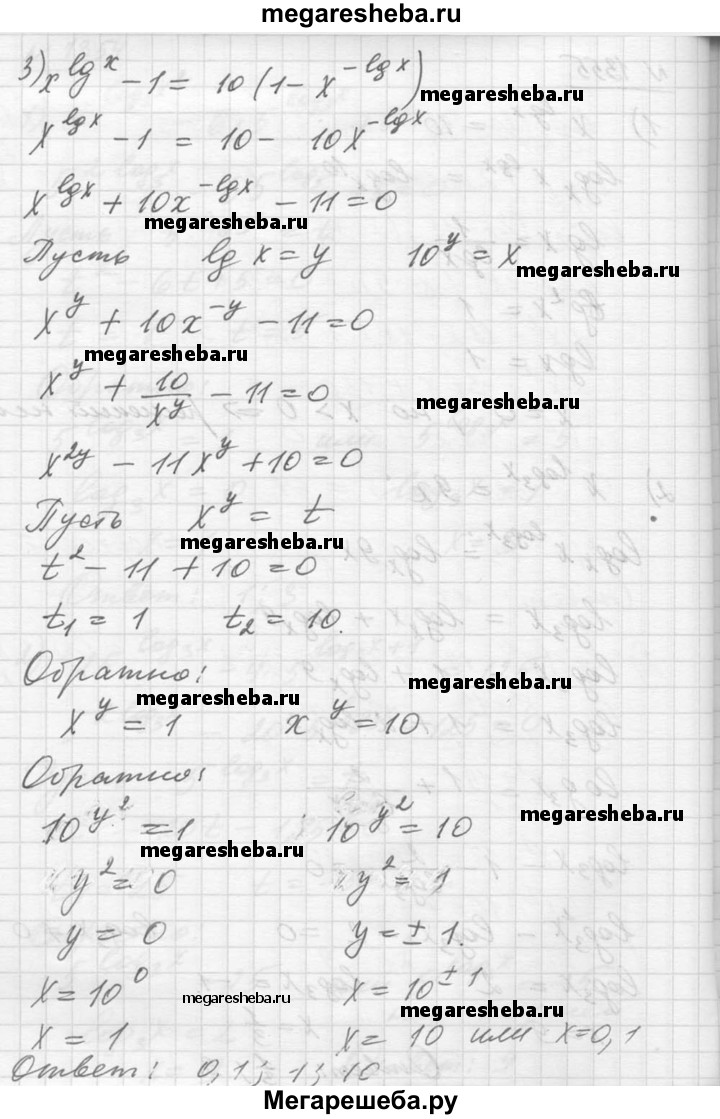 megaresheba.ru
3) x^(lg x) - 1 = 10(1 - x^(-lg x))
megaresheba.ru
x^(lg x) - 1 = 10 - 10x^(-lg x)
x^(lg x) + 10x^(-lg x) - 11 = 0
megaresheba.ru
Пусть lg x = y 10^y = x
megaresheba.ru
x^y + 10x^(-y) - 11 = 0
megaresheba.ru
x^y + 10/x^y - 11 = 0
megaresheba.ru
x^(2y) - 11x^y + 10 = 0
Пусть x^y = t
megaresheba.ru
t^2 - 11 + 10 = 0
t₁ = 1 t₂ = 10.
Обратно:
megaresheba.ru megaresheba.ru
x^y = 1 x^y = 10
Обратно:
megaresheba.ru
10^(y^2) = 1 10^(y^2) = 10
megaresheba.ru
y^2 = 0 y^2 = 1
y = 0 y = ± 1.
x = 10^0 x = 10^(±1)
megaresheba.ru megaresheba.ru
x = 1 x = 10 или x = 0,1
Ответ: 0,1; 1; 10
Мегарешеба.ру